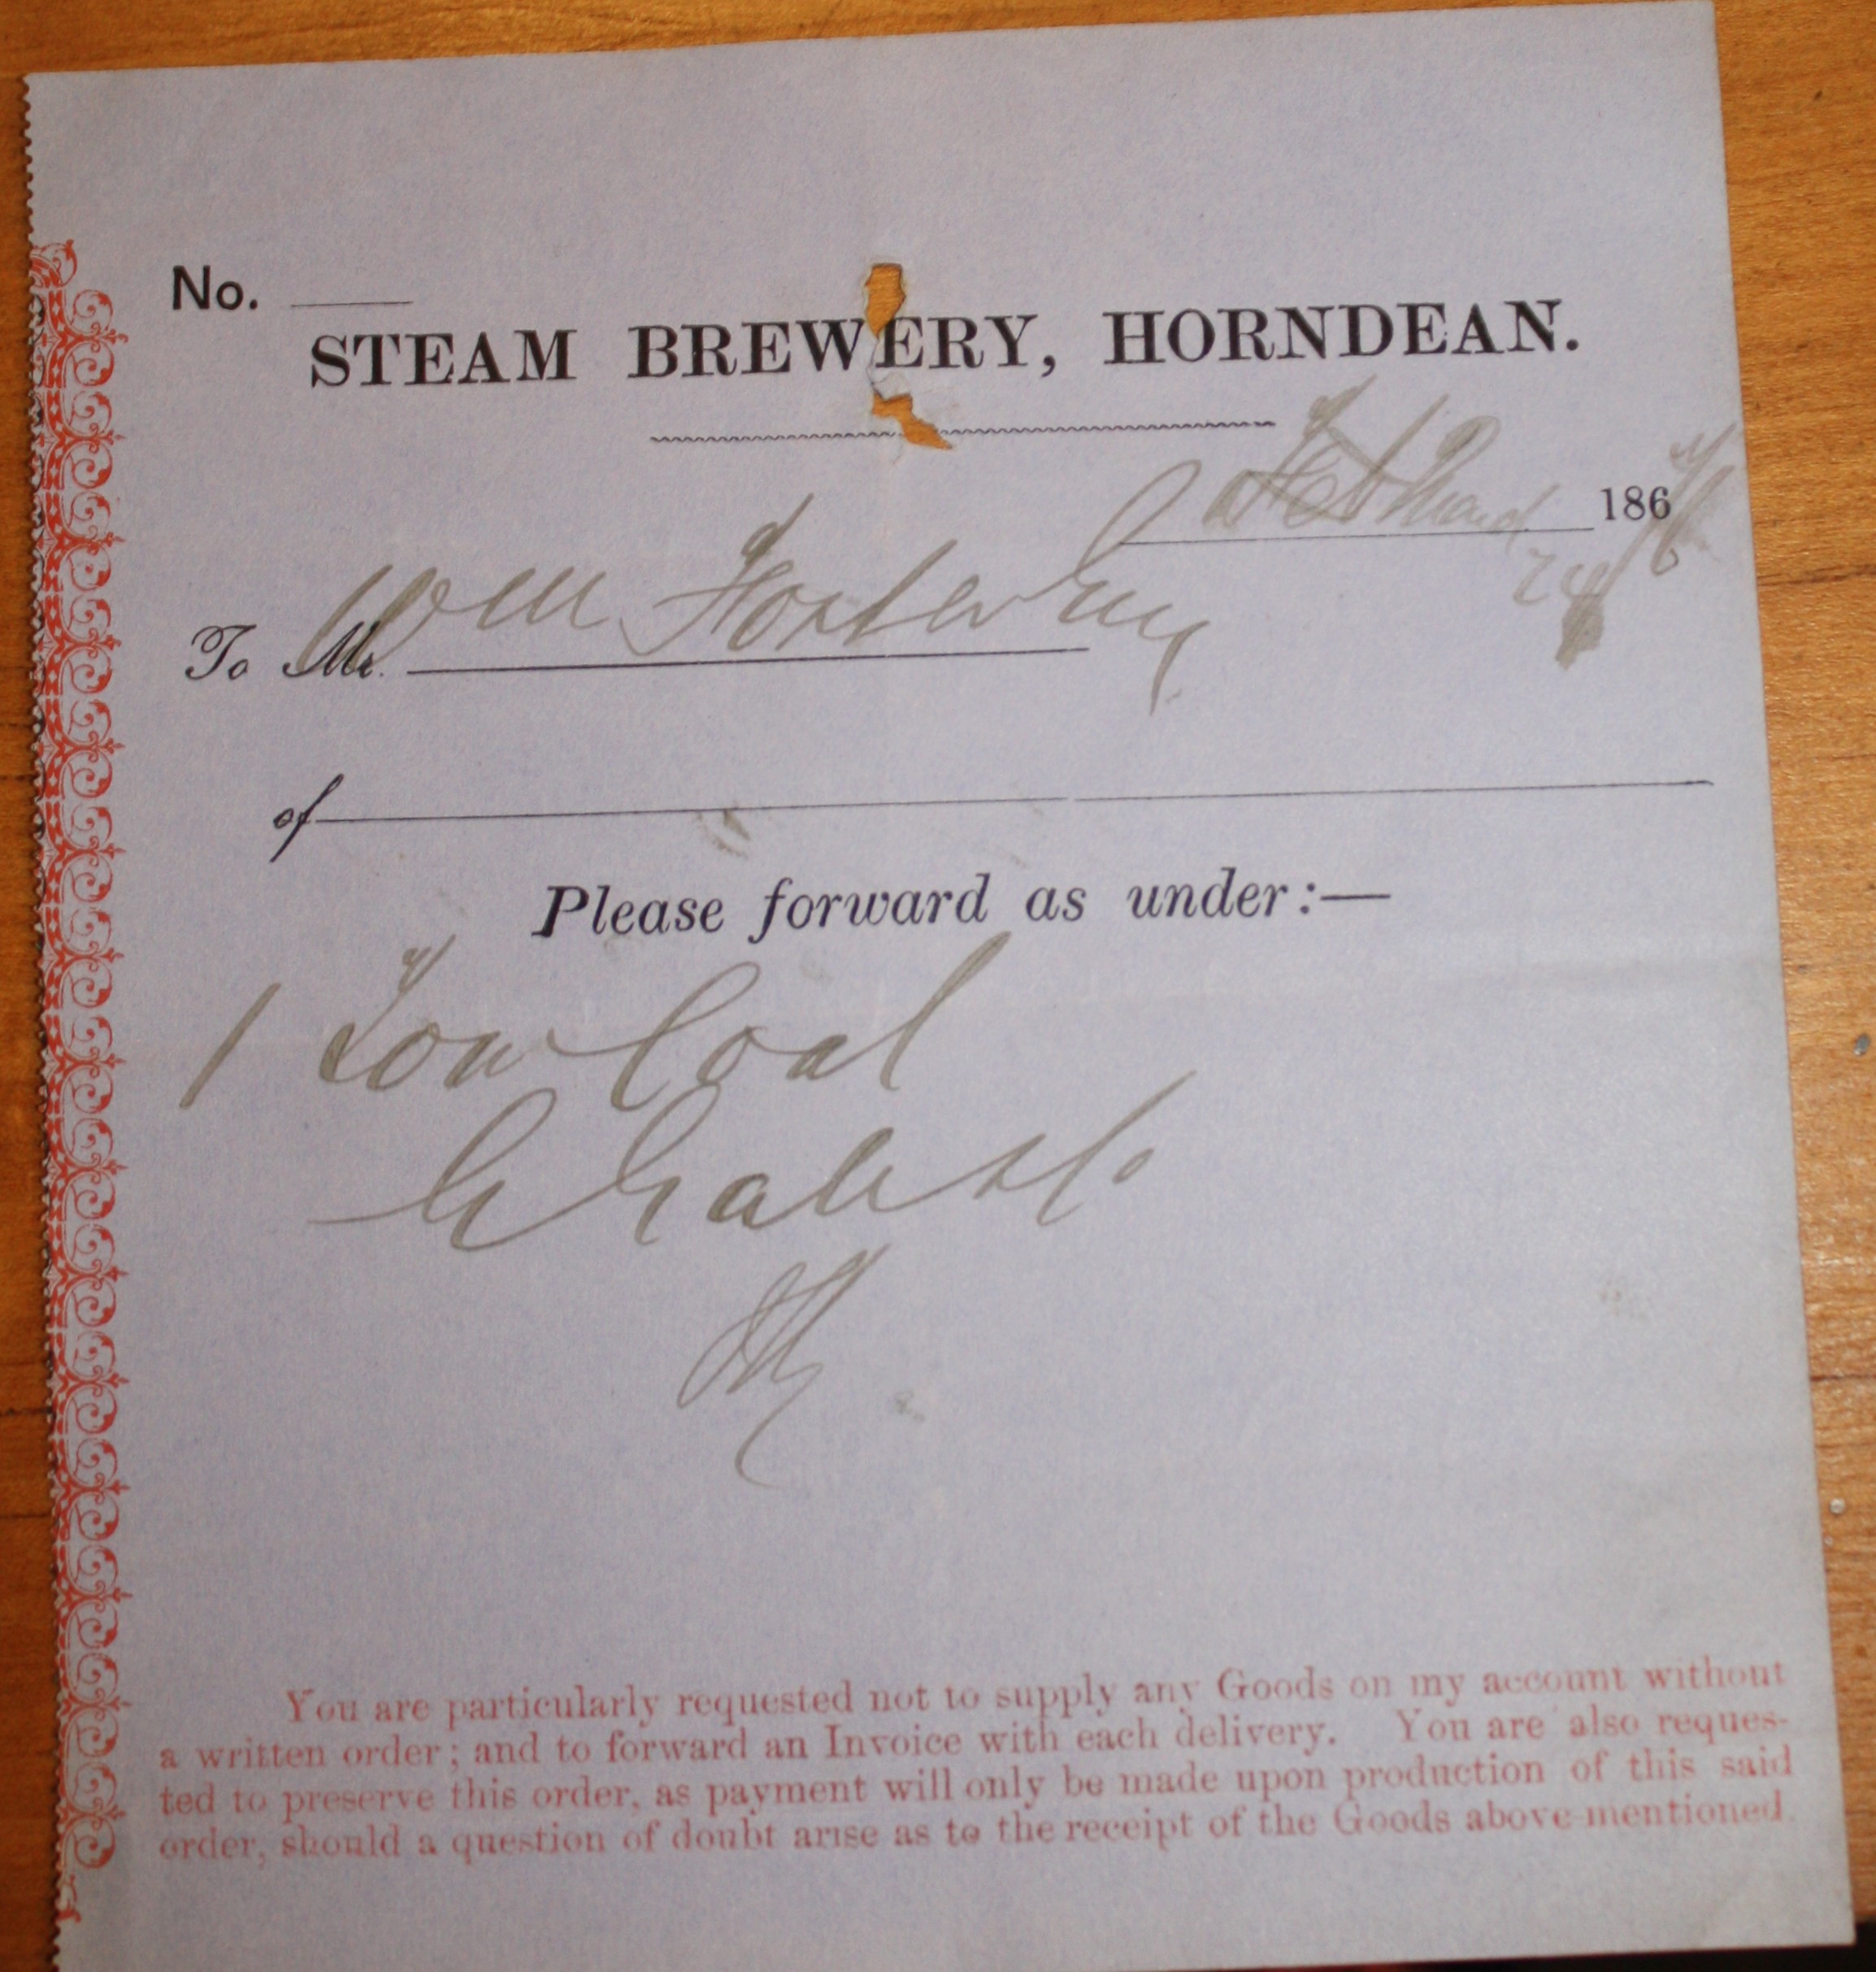 No.
STEAM BREWERY, HORNDEAN.
186
24
To Mr. Wm Foster Esq
of
Please forward as under:—
1 Ton Coal
You are particularly requested not to supply any Goods on my account without
a written order; and to forward an Invoice with each delivery. You are also reques-
ted to preserve this order, as payment will only be made upon production of this said
order, should a question of doubt arise as to the receipt of the Goods above-mentioned.